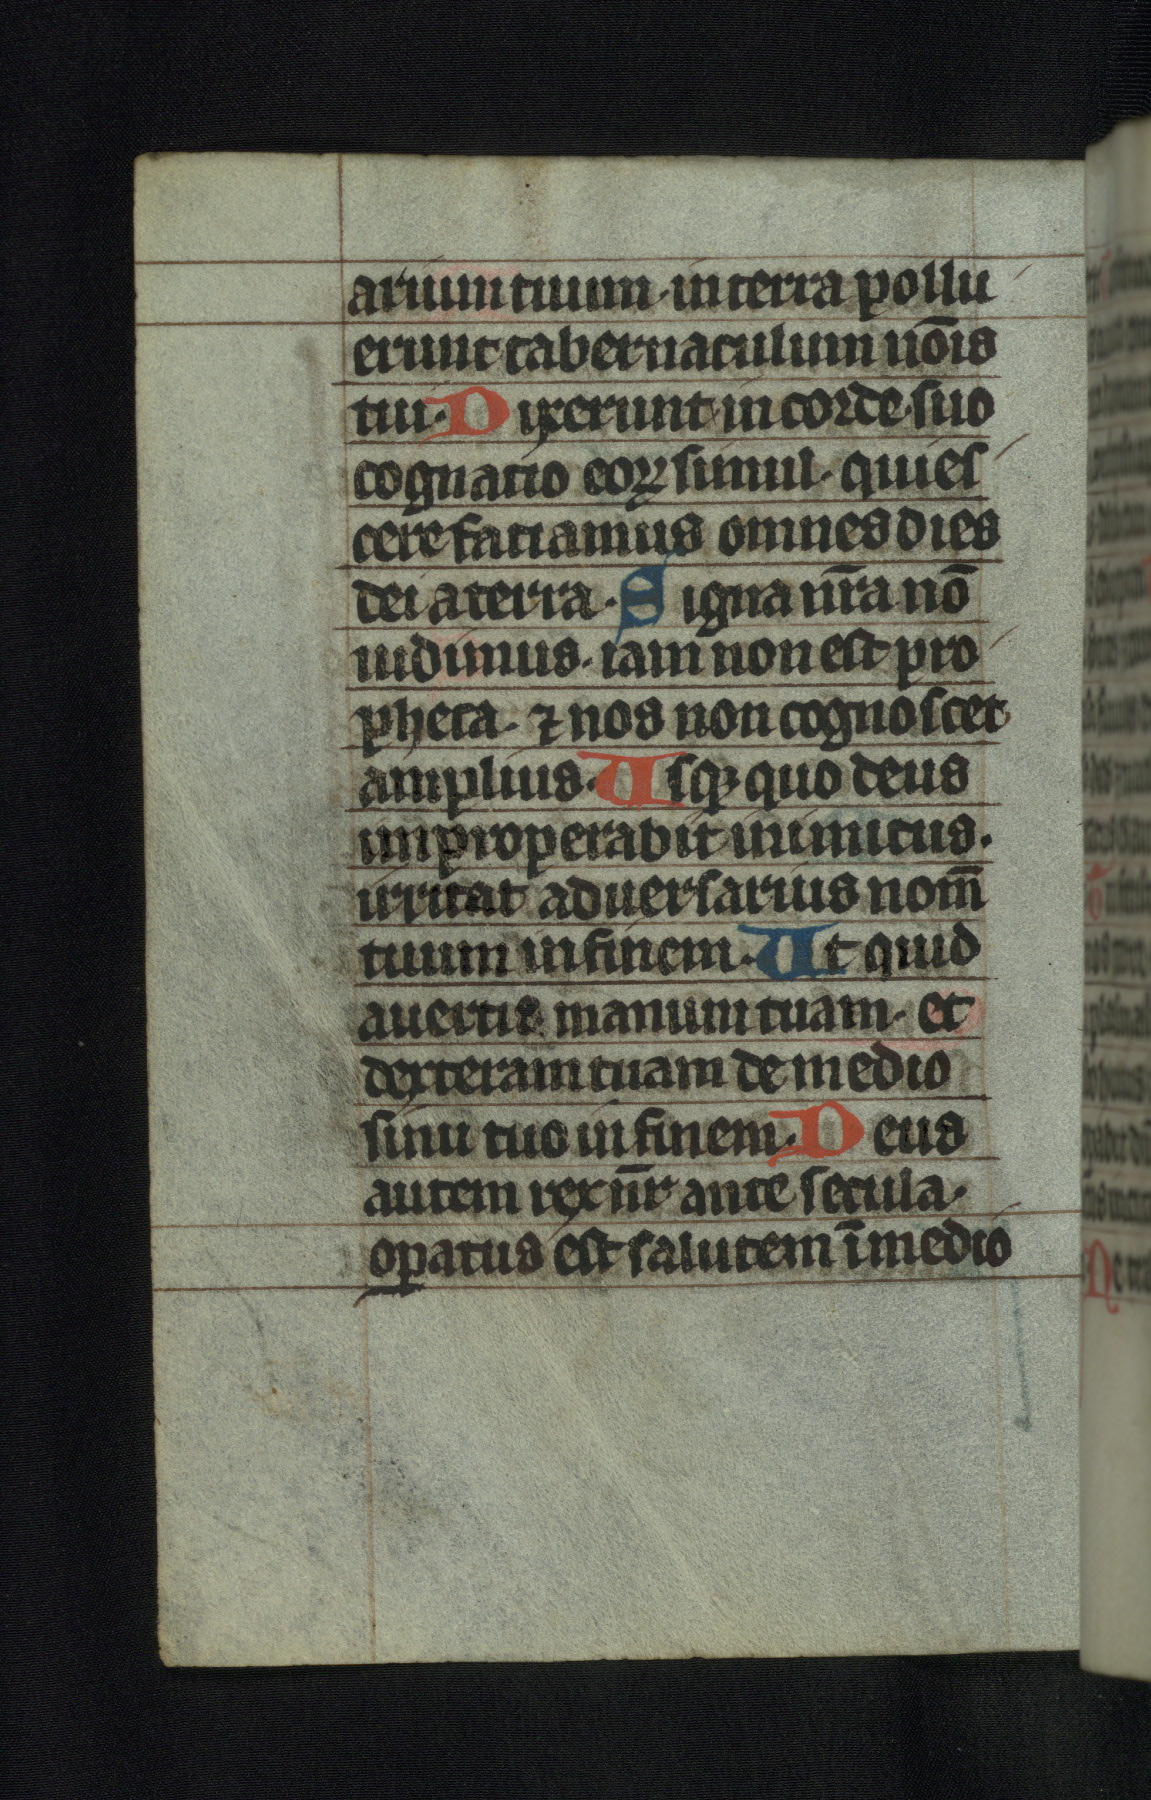 arium tuum · in terra pollu
erunt tabernaculum nōis
tui · Dixerunt in corde suo
cognatio eoꝝ simul · quies
cere faciamus omnes dies
dei a terra · Signa nr̄a nō
uidimus · iam non est pro
pheta · ⁊ nos non cognoscet
amplius · Usqꝫ quo deus
improperabit inimicus ·
irritat aduersarius nom̄
tuum in finem · Ut quid
auertis manum tuam · et
dexteram tuam de medio
sinu tuo in finem · Deus
autem rex nr̄ ante secula ·
oꝑatus est salutem ī medio